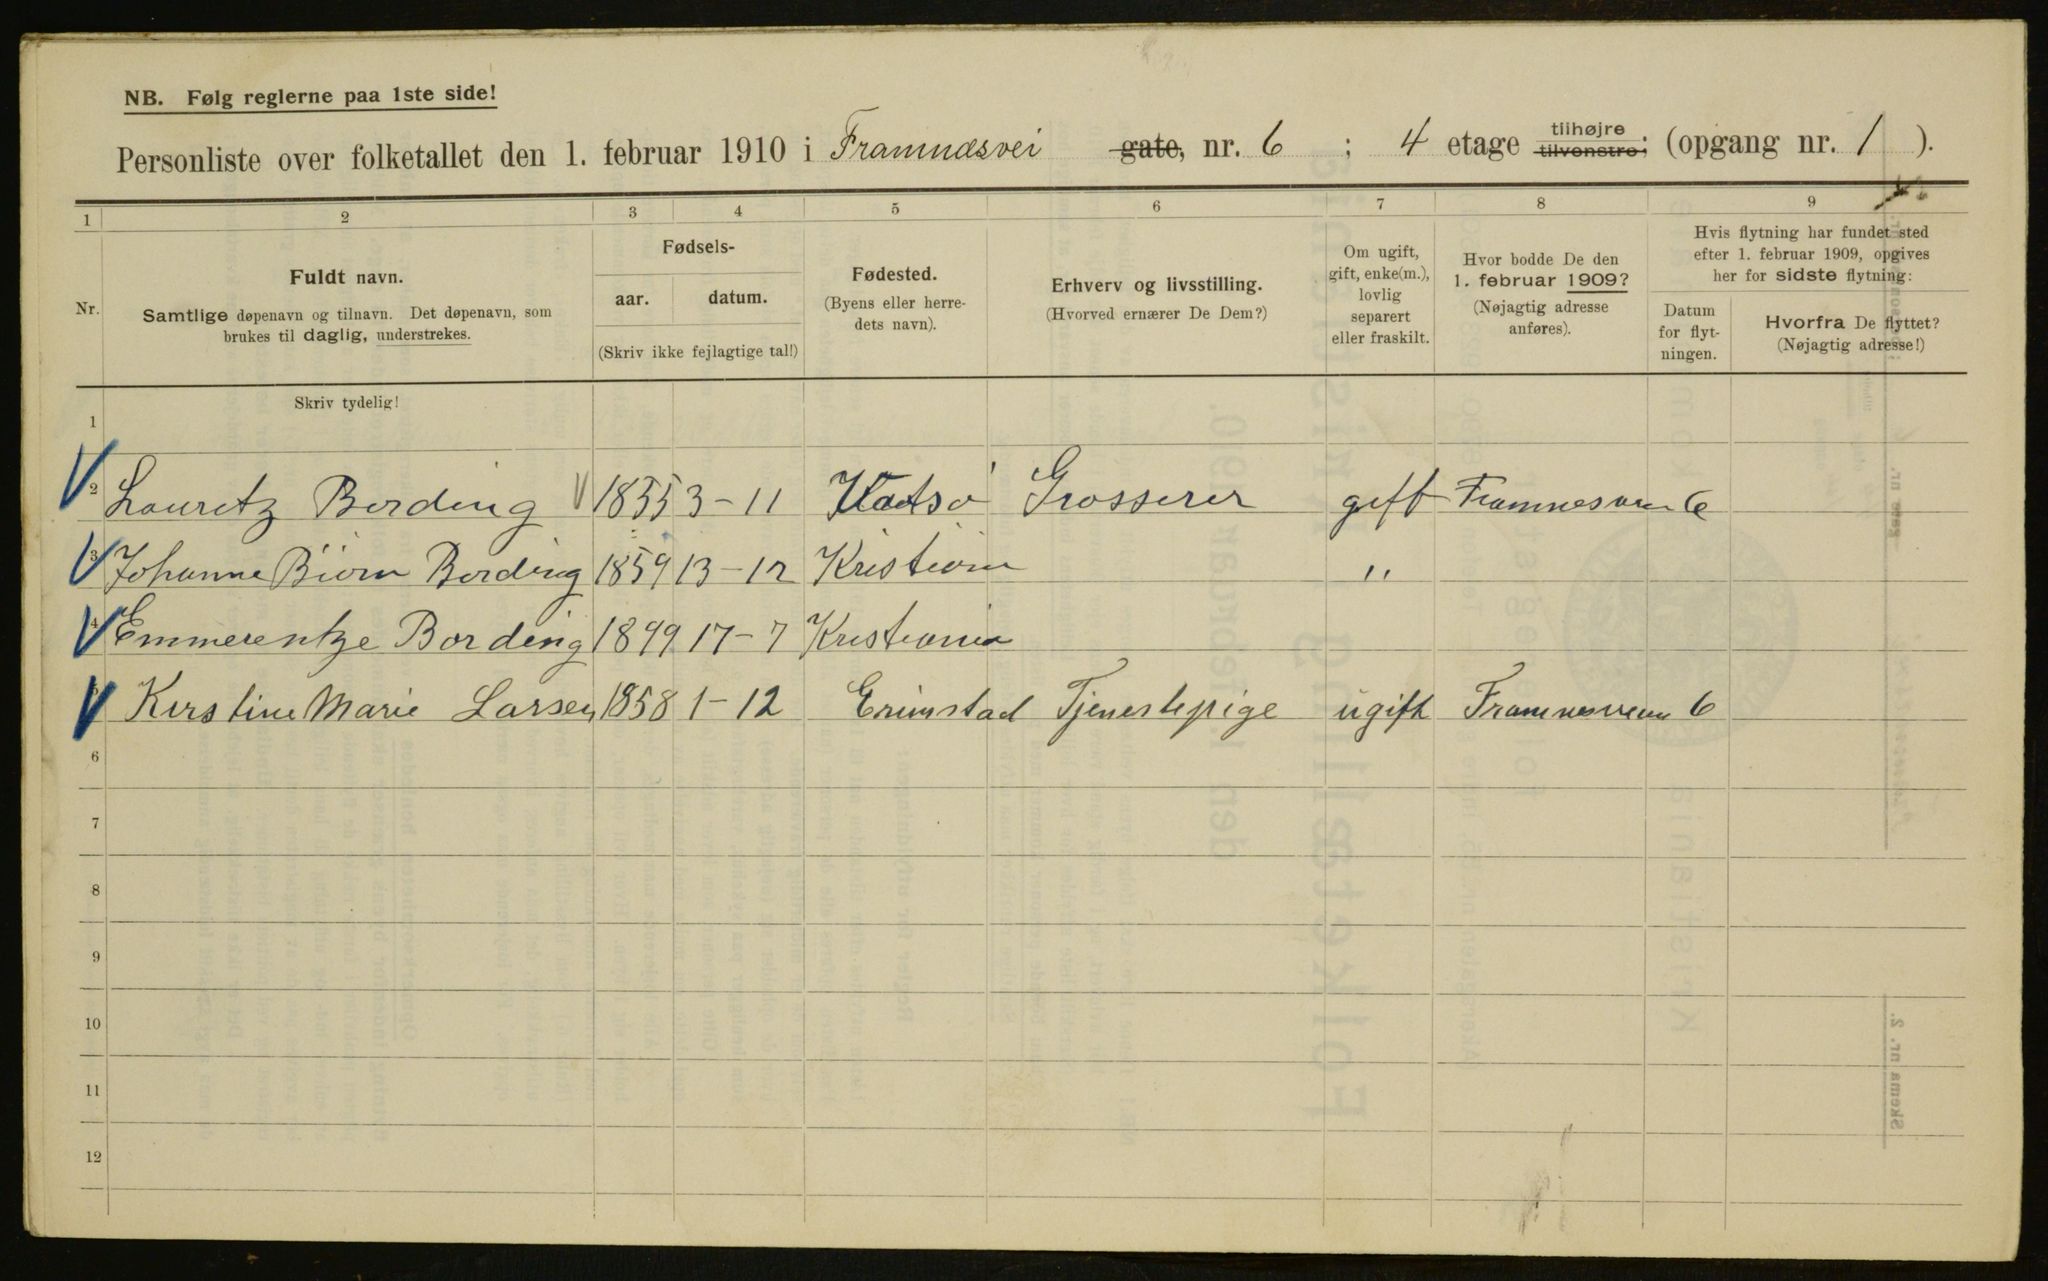 NB. Følg reglerne paa 1ste side!
Personliste over folketallet den 1. februar 1910 i Framnæsvei gate, nr. 6 ; 4 etage tilhøjre tilvenstre; (opgang nr. 1 ).
1 2 3 4 5 6 7 8 9
Nr.
Fuldt navn.
Samtlige døpenavn og tilnavn. Det døpenavn, som
brukes til daglig, understrekes.
Fødsels-
aar. datum.
(Skriv ikke fejlagtige tal!)
Fødested.
(Byens eller herre-
dets navn).
Erhverv og livsstilling.
(Hvorved ernærer De Dem?)
Om ugift,
gift, enke(m.),
lovlig
separert
eller fraskilt.
Hvor bodde De den
1. februar 1909?
(Nøjagtig adresse
anføres).
Hvis flytning har fundet sted
efter 1. februar 1909, opgives
her for sidste flytning:
Datum
for flyt-
ningen.
Hvorfra De flyttet?
(Nøjagtig adresse!)
Skriv tydelig!
1
2 Lauretz Bording 1855 3-11 Grosserer gift Framnesveien 6
3 Johanne Biørn Bording 1859 13-12 Kristiania "
4 Emmerentze Bording 1899 17-7 Kristiania
5 Kirstine Marie Larsen 1858 1-12 Grimstad Tjenestepige ugift Framnesveien 6
6
7
8
9
10
11
12